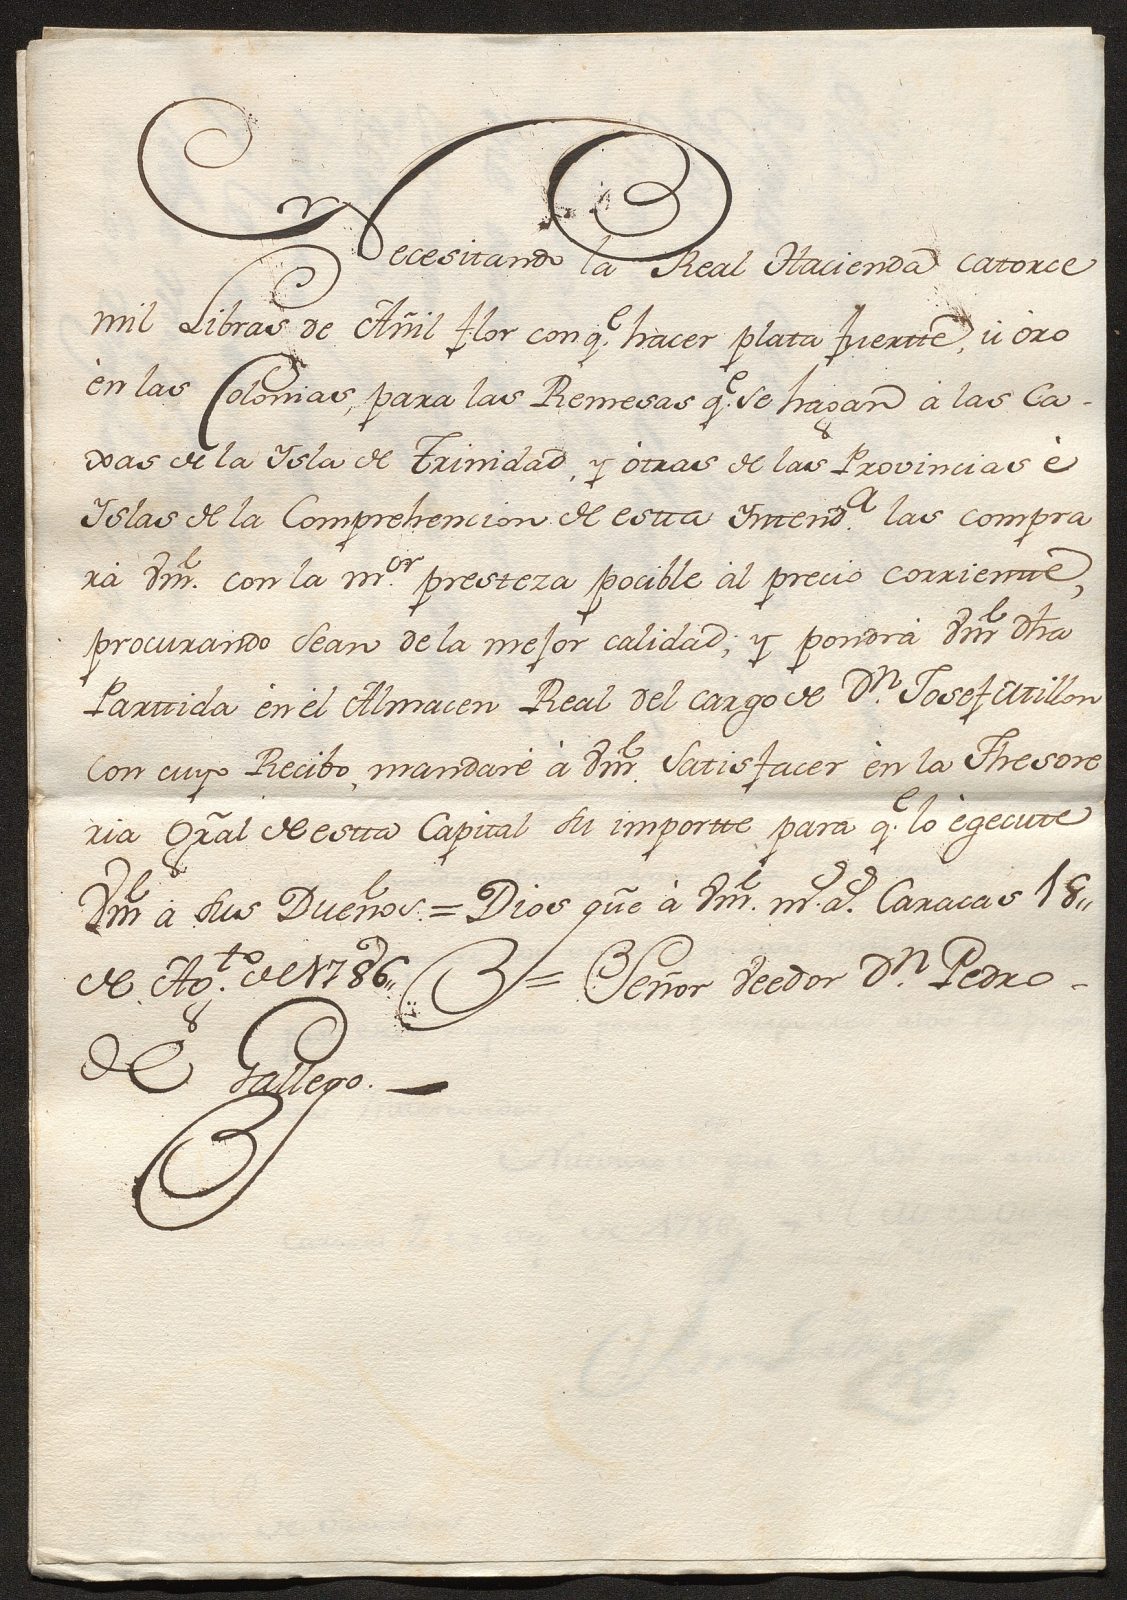 Necesitando la Real Hacienda catorce
mil Libras de Añil flor con q.e hacer plata fuertte, ú óro
èn las Colonias, para las Remesas q.e se hagan à las Ca-
xas de la Isla de Trinidad, y òtras de las Provincias è
Yslas de la Comprehencion de estta Yntend.a las compra
rà Vm.e con la m.or presteza pocible àl precio corriente,
procurando sean de la mejor calidad; y pondrà Vm.e dha
Parttida èn èl Almacen Real del cargo de Dn. Josef Utillon
con cuyo Recibo, mandarè à Vm.e satisfacer èn la Thesore
ria Gral de estta Capital su importte, para q.e lo ègecute
Vm.e à sus Dueños. = Dios gue à Vm.e m.s a.s Caracas 18,,
de Ag.to de 1786,, = Señor Veedor Dn. Pedro -
de Gallego. —